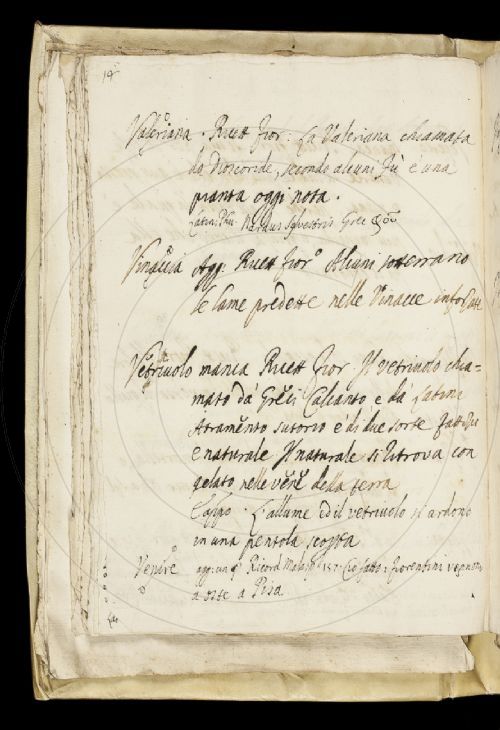 Valeriana. Ricett Fior: La Valeriana chiamata
da Dioscoride, secondo alcuni Fù è una
pianta oggi nota.
Latin. Phu. Nardus Sylvestris Grec φοῦ
Vinaccia Agg: Ricett fior° Alcuni sotterrano
le lame predette nelle Vinacce
Vetriuolo manca Ricett Fior. Il vetriuolo chia=
mato dà Greci Calcanto e dà Latini
Atramento sutorio è di due sorte
e naturale Il naturale si ritrova con
gelato nelle vene della terra
L'allume ed il vetriuolo si ardono
in una pentola
Venire agg: un Ricord Malesp 157. Ciò fatto i fiorentini
a oste a Pisa